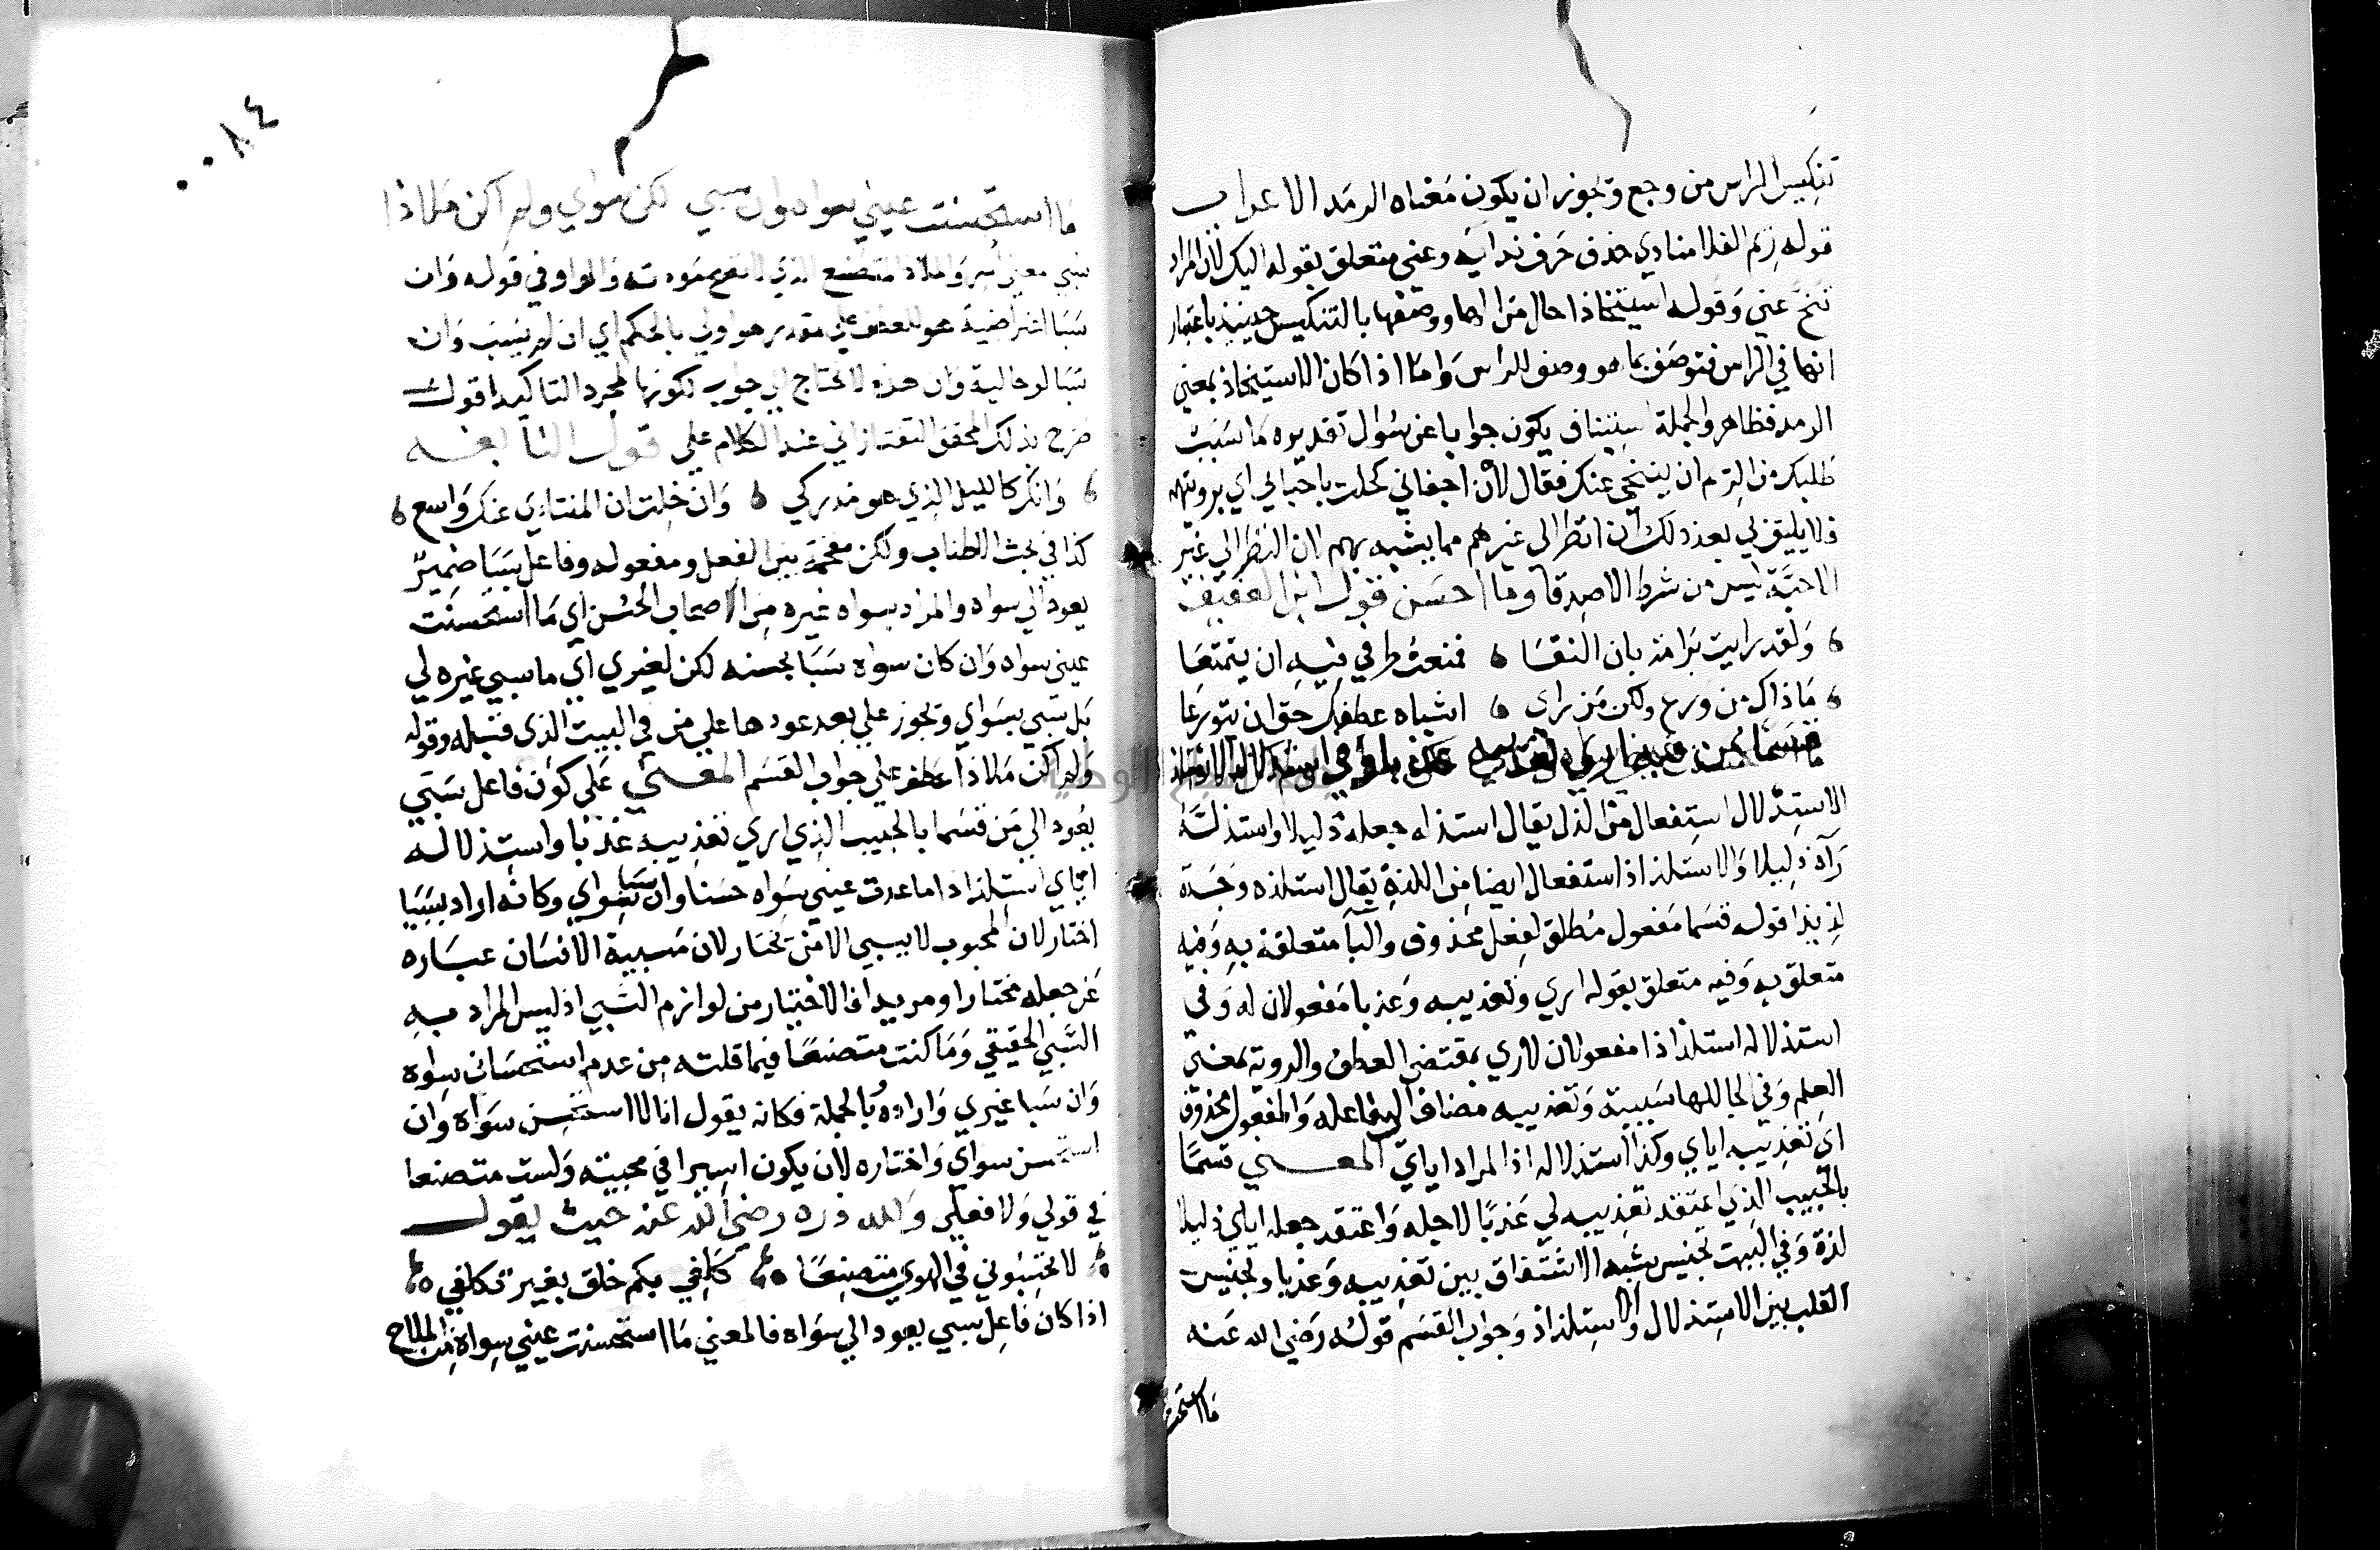 تنكيس الراس من وجع وتجوز ان يكون معناه الرمد الاعراب
قوله ريم الفلا منادي حذف حرف ندايه وعني متعلق بقوله اليك لان المراد
تنح عني وقوله استيخاذا حال من ووصفها بالتنكيس حينيذ باعتبار
انها في الراس فتوصف بما هو وصف للراس واما اذا كان الاستيخاذ بمعني
الرمد فظاهر والجملة استيناف يكون جوابا عن سوال تقديره ما سبب
طلبك من الريم ان يتنحي عنك فقال لان اجفاني كحلت باحبابي اي برويتهم
فلا يليق لي بعد ذلك ان انظر الي غيرهم مما يشبه بهم لان النظر الي غير
الاحبة ليس من شرط الاصدقا وما احسن قول ابن العفيف
ولقد رايت برامة بان النقا فمنعت طرفي فيه ان يتمتعا
ما ذاك من ورع ولكن من راي اشباه عطفك حق ان يتورعا
قسما بمن
الاستذلال استفعال من الذل يقال استذله جعله ذليلا واستذله
رآه ذليلا والاستلذاذ استفعال ايضا من اللذة يقال استلذه وجده
لذيذا قوله قسما مفعول مطلق لفعل محذوف والبا متعلقة به وفيه
متعلق به وفيه متعلق بقوله اري وتعذيبه وعذبا مفعولان له وفي
استذلاله استلذاذا مفعولان لاري بمقتضي العطف والروية بمعني
العلم وفي لها سببية وتعذيبه مضاف الي فاعله والمفعول محذوف
اي تعذيبه اياي وكذا استذلاله اذ المراد اياي المعني قسما
بالحبيب الذي اعتقد تعذيبه لي عذبا لاجله واعتقد جعله اياي ذليلا
لذة وفي البيت تجنيس شبه الاشتقاق بين تعذيبه وعذبا وتجنيس
القلب بين الاستذلال والاستلذاذ وجواب القسم قوله رضي الله عنه
ما استحسنت
٨٤
ما استحسنت عيني سواه وان سبي لكن سواي ولم اكن ملاذا
سبي معني اسر والملاذ المتصنع الذي لا تصح مودته والواو في قوله وان
سبا اعتراضية هو للعطف علي مقدر هو اولي بالحكم اي ان لم يسب وان
سبا او حالية وان هذه لا تحتاج الي جواب لكونها لمجرد التاكيد اقول
صرح بذلك المحقق التفتازاني عند الكلام علي قول النابغه
وانك كالليل الذي هو مدركي وان خلت ان المنتاي عنك واسع
كذا في بحث الاطناب ولكن مقحمة بين الفعل ومفعوله وفاعل سبا ضمير
يعود الي سواه والمراد بسواه غيره من اصحاب الحسن اي ما استحسنت
عيني سواه وان كان سواه سبا بحسنه لكن لغيري اي ما سبي غيره لي
بل سبي بسواي وتجوز علي بعد عودها علي من في البيت الذي قبله وقوله
ولم اكن ملاذا عطف علي جواب القسم المعني علي كون فاعل سبي
يعود الي من قسما بالحبيب الذي اري تعذيبه عذبا واستذلاله
اياي استلذاذا ما عدت عيني سواه حسنا وان سبا سواي وكانه اراد بسبيا
اختار لان المحبوب لا يسبي الا من يختار لان مسبية الانسان عباره
عن جعله مختارا ومريدا فالاختيار من لوازم السبي اذ ليس المراد به
السبي الحقيقي وما كنت متصنعا فيما قلته من عدم استحسان سواه
وان سبا غيري واراده بالجملة فكانه يقول انا لا استحسن سواه وان
استحسن سواي واختاره لان يكون اسيرا في محبته ولست متصنعا
في قولي ولا فعلي ولله دره رضي الله عنه حيث يقول
لا تحسبوني في الهوي متصنعا كلفي بكم خلق بغير تكلفي
اذا كان فاعل سبي يعود الي سواه فالمعني ما استحسنت عيني سواه من الملاح